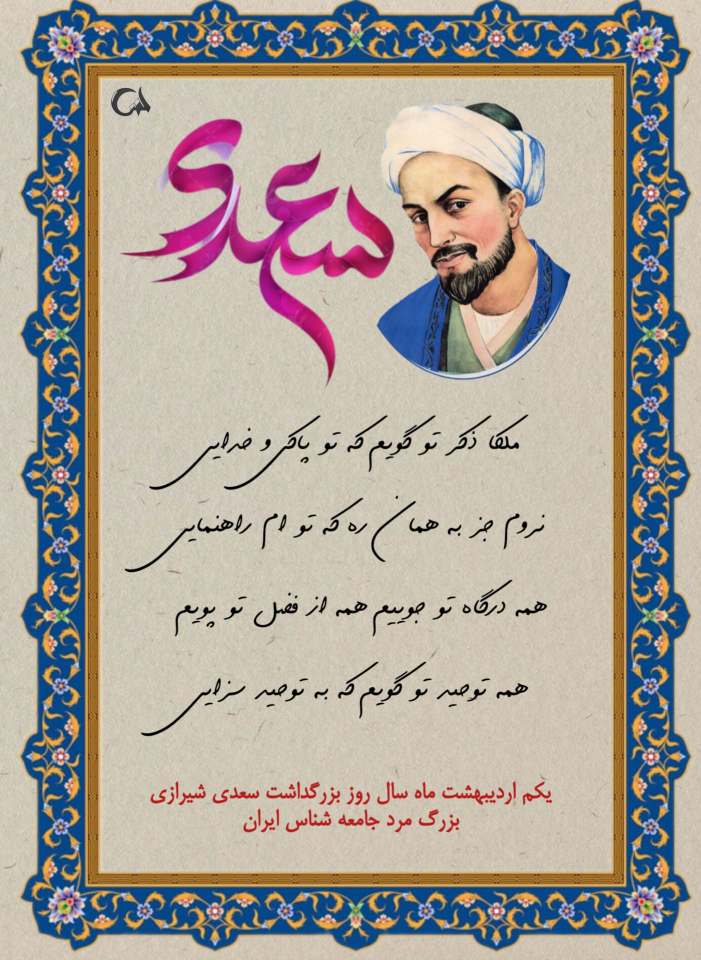 سعدی
ملکا ذکر تو گویم که تو پاکی و خدایی
نروم جز به همان ره که تو ام راهنمایی
همه درگاه تو جوییم همه از فضل تو پویم
همه توحید تو گویم که به توحید سزایی
یکم اردیبهشت ماه سال روز بزرگداشت سعدی شیرازی
بزرگ مرد جامعه شناس ایران